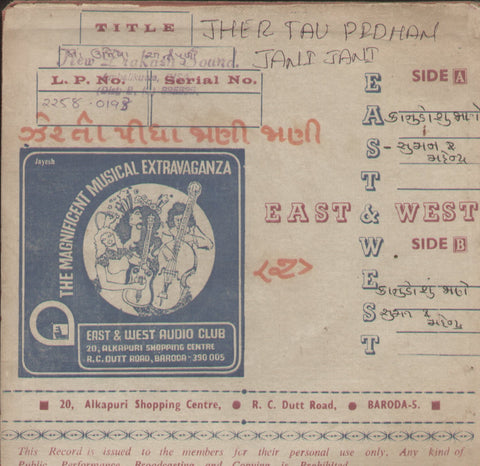 TITLE
JHER TAU PIDHAN
JANI JANI
New Prakash Sound.
L. P. No. Serial No.
2258-0198
ઝેર તો પીધા જાણી જાણી
SIDE A
EAST & WEST
SIDE B
EAST & WEST
Jayesh
THE MAGNIFICENT MUSICAL EXTRAVAGANZA
EAST & WEST AUDIO CLUB
20, ALKAPURI SHOPPING CENTRE
R.C. DUTT ROAD, BARODA-390 005
20, Alkapuri Shopping Centre, R. C. Dutt Road, BARODA-5.
This Record is issued to the members for their personal use only. Any kind of
Public Performance, Broadcasting and Copying is Prohibited